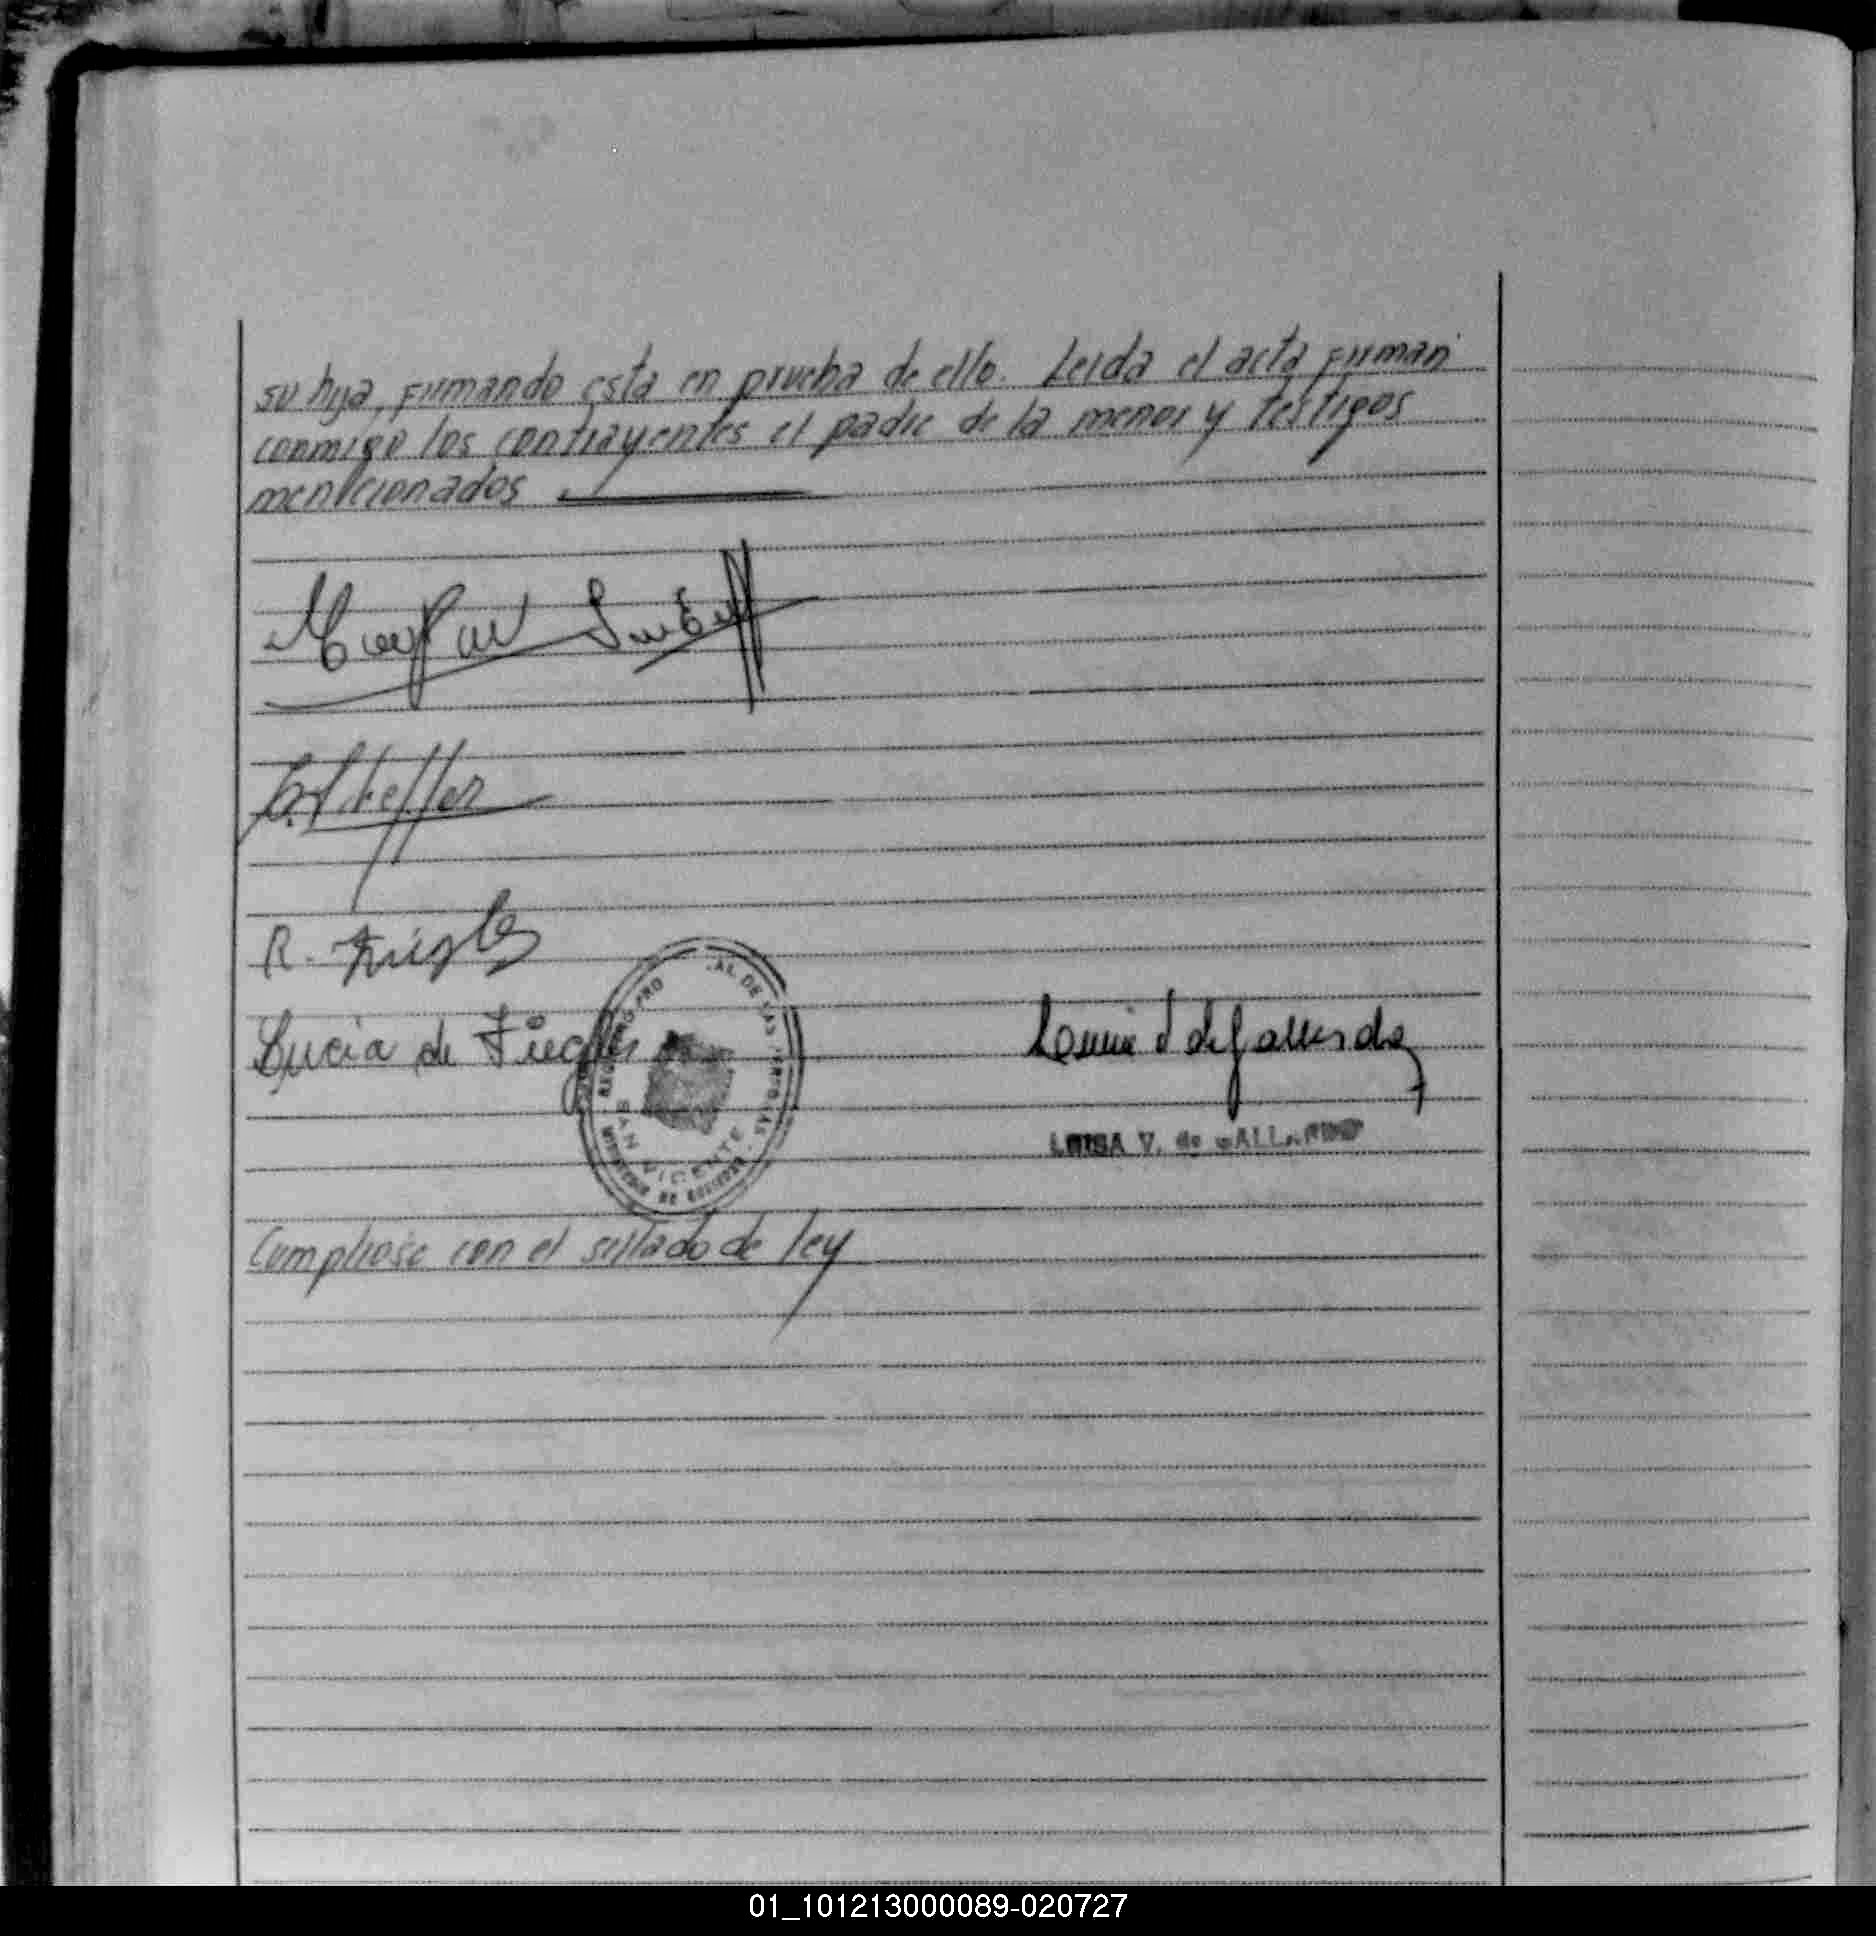 su hija, firmando esta en prueba de ello. Leida el acta firman
conmigo los contrayentes el padre de la menor y testigos
mencionados
R.
Lucia de
LUISA V. de GALLARDO
REGISTRO PRO AL DE LAS PERSONAS
SAN VICENTE
MINISTERIO DE GOBIERNO
Cumpliose con el sellado de ley
01_101213000089-020727